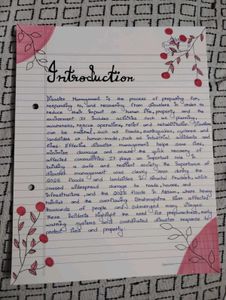 Introduction
Disaster Management is the process of preparing for,
responding to, and recovering from disasters in order to
reduce their impact on human life, property and the
environment. It includes activities such as planning,
awareness, rescue operations, relief and rehabilitation. Disasters
can be natural, such as floods, earthquakes, cyclones and
landslides or human-made, such as industrial accidents and
fires. Effective disaster management helps save lives,
minimise damage and ensure the quick recovery of
affected communities. It plays an important role in
building a safe and resilient society. The importance of
disaster management was clearly seen during the
2023 floods and landslides in Himachal Pradesh, which
caused widespread damage to roads, houses and
infrastructure, and the 2022 floods in Assam, where heavy
rainfall and the overflowing Brahmaputra River affected
thousands of people and submerged many villages.
These incidents highlight the need for preparedness, early
warning systems and coordinated disaster response to
protect lives and property.